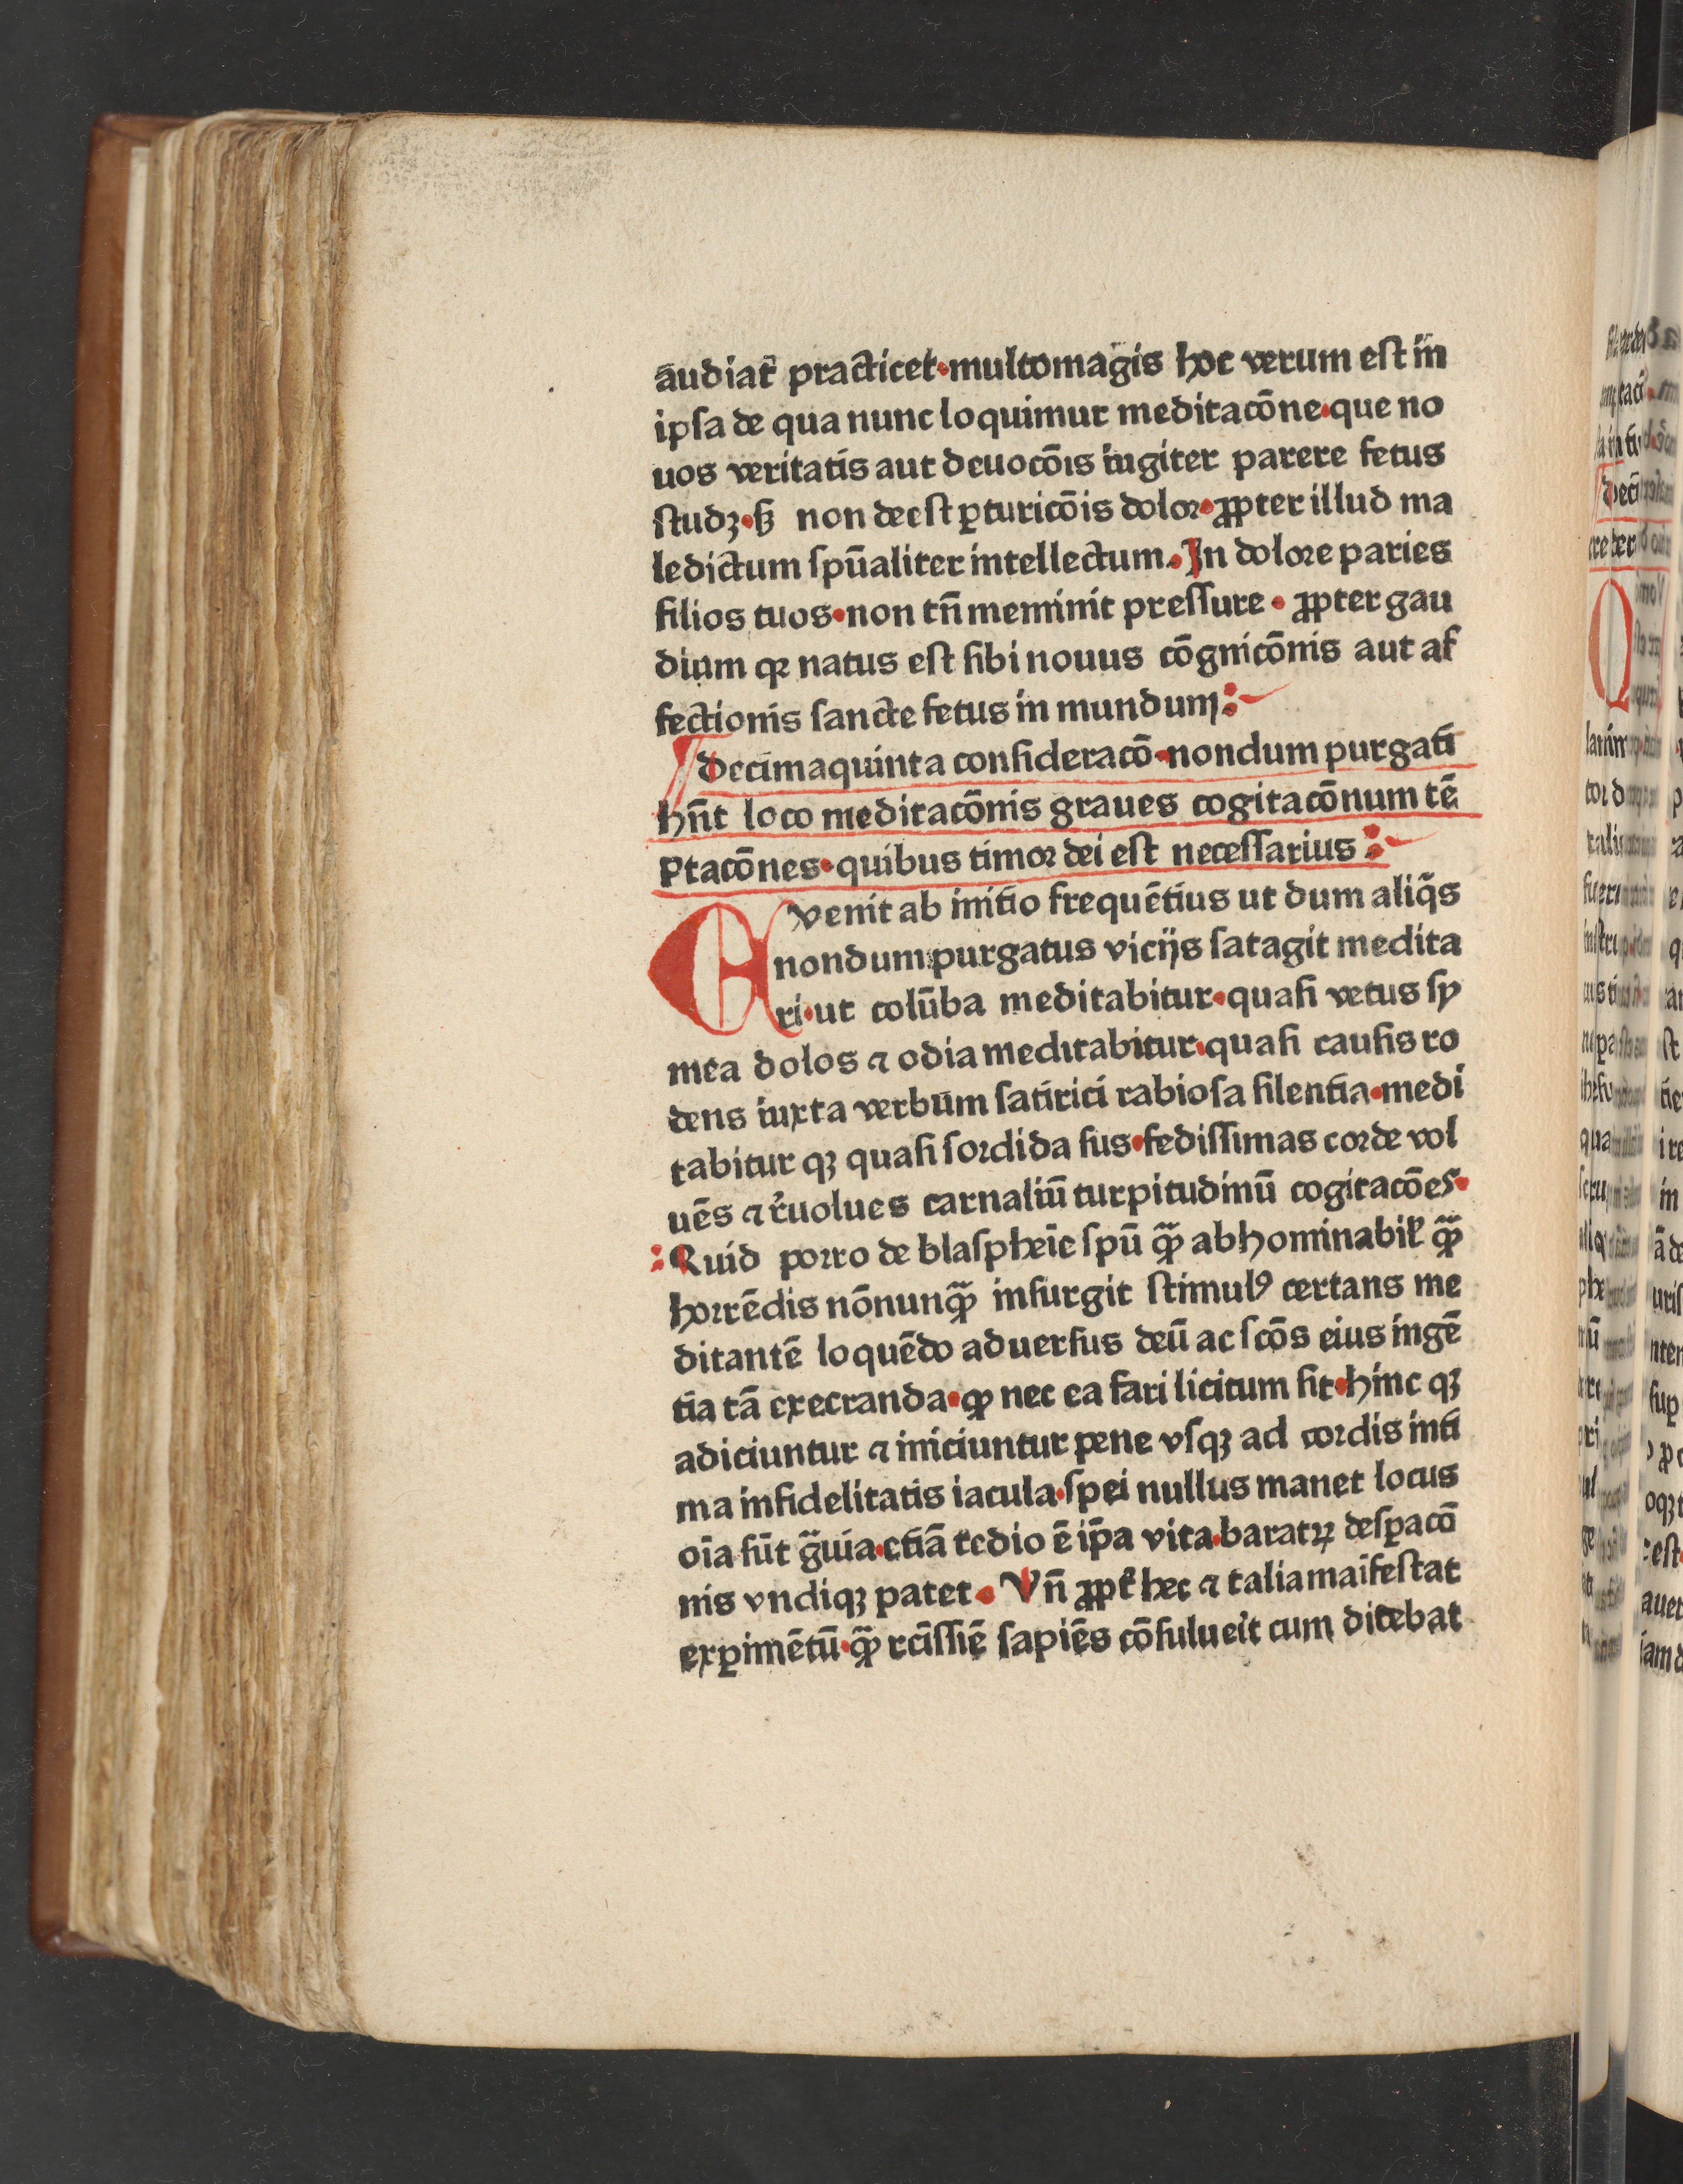 audiat᷑ practicet·multomagis hoc verum est in
ipsa de qua nunc loquimur meditacōne·que no
uos veritatis aut deuocōıs iugiter parere fetus
studꝫ·sꝫ non deest ꝑturicōis dolor·ꝓpter illud ma
ledictum spūaliter intellectum·In dolore paries
filios tuos·non tn̄ meminit pressure·ꝓpter gau
dium qꝛ natus est sibi nouus cōgnicōnis aut af
fectionis sancte fetus in mundum:
Decimaquinta consideracō·nondum purgati
hn̄t loco meditacōnis graues cogitacōnum tē
ptacōnes·quibus timor dei est necessarius:
Evenit ab initio frequētius ut dum aliq̄s
nondum purgatus vicijs satagit medita
ri·ut colūba meditabitur·quasi vetus sy
mea dolos ⁊ odia meditabitur·quasi causis ro
dens iuxta verbum satirici rabiosa silentia·medi
tabitur qꝫ quasi sordida sus·fedissimas corde vol
uēs ⁊ r̄uolues carnaliū turpitudinū cogitacōes·
:Quid porro de blaspheīe spū qꝫ̄ abhominabil' qꝫ̄
horrēdis nōnunqꝫ̄ insurgit stimulꝰ certans me
ditantē loquēdo aduersus deū ac scōs eius ingē
tia tā execranda·ꝙ nec ea fari licitum sit·hinc qꝫ
adiciuntur ⁊ iniciuntur pene vsqꝫ ad cordis inti
ma infidelitatis iacula·spei nullus manet locus
oīa sūt g̃uia·etiā tedio ē ip̄a vita·baratꝝ desꝑacō
nis vndiqꝫ patet·Vn̄ ꝓpt᷑ hec ⁊ talia maīfestat
exꝑimētū·qꝫ̄ rc̄issīē sapiēs cōsulueīt cum dicebat